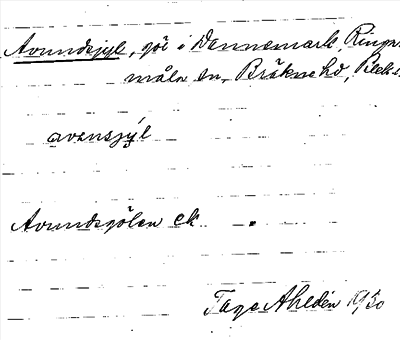 Avundsgyl, göl i Dannemark, Ringa-
måla sn, Bräkne hd, Blek.
avensjyl
Avundsgölen ek
Tage Ahldén 1930